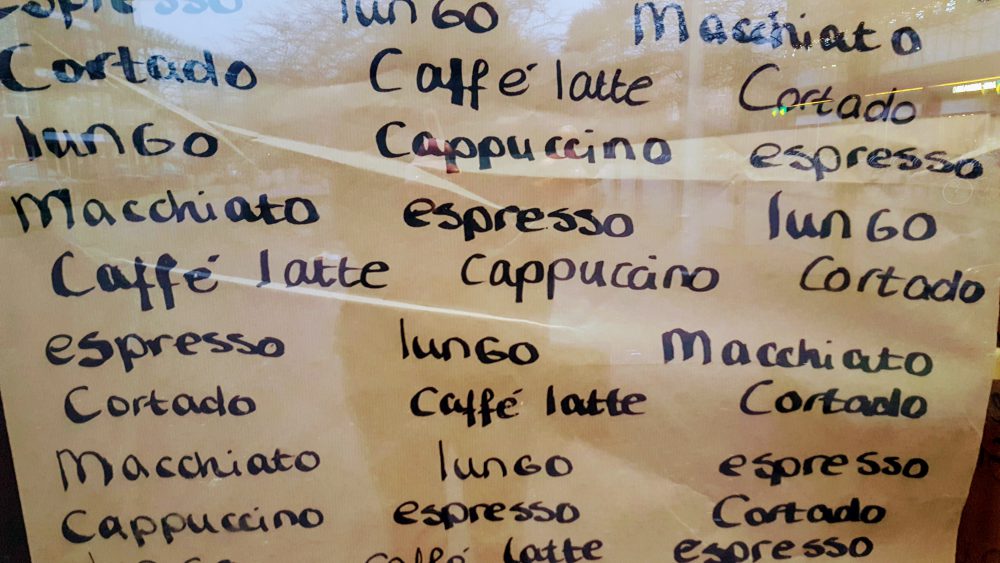 espresso lunGo Macchiato
Cortado Caffé latte Cortado
lunGo Cappuccino espresso
Macchiato espresso lunGo
Caffé latte Cappuccino Cortado
espresso lunGo Macchiato
Cortado Caffé latte Cortado
Macchiato lunGo espresso
Cappuccino espresso Cortado
caffé latte espresso